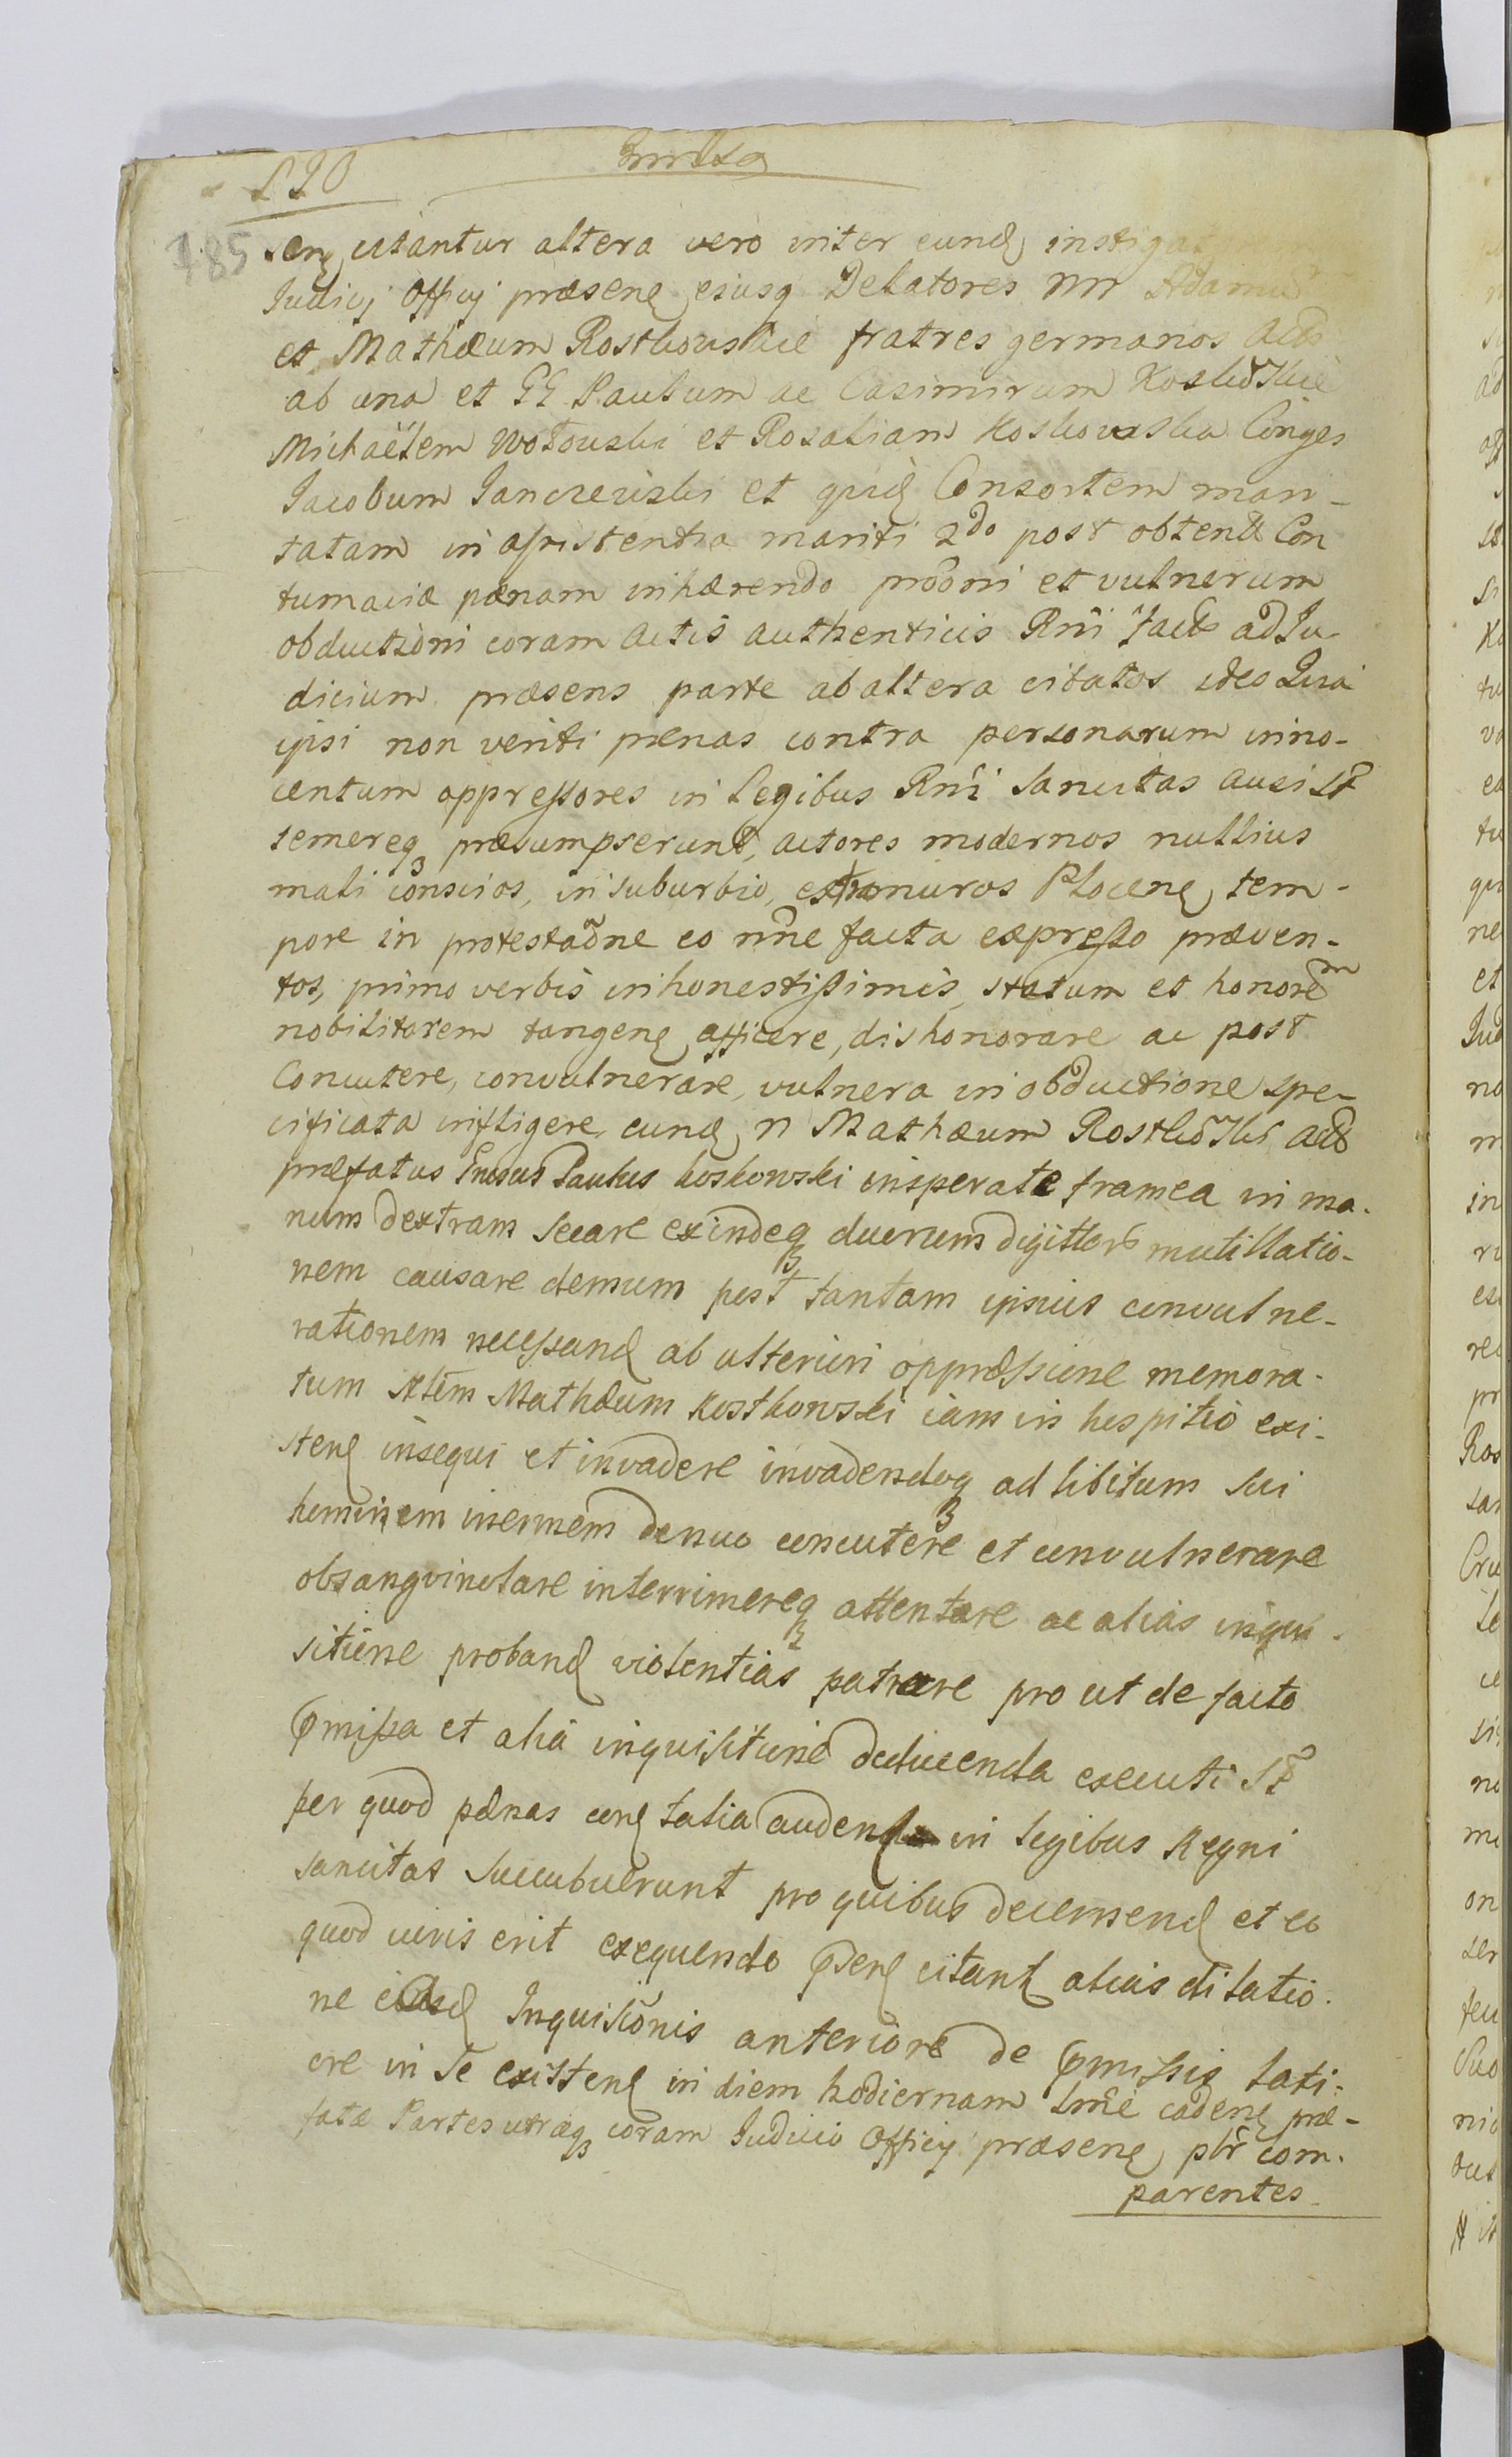 785
senę citantur altera vero inter eundę instigat
Judicij Officij præsenę ejusq Delatores nrr Adamū
et Mathæum Rostkowskie fratres germanos Act
ab una et GG Paulum ac Casimirum Koskowskie
Michaëlem Wołowski et Rosaliam Koskowska Conges
Jacobum Janczewski et quidę Consortem mari-
tatam in assistentia mariti 2do post obtentę Con
tumaciæ pænam inhærendo prõoni et vulnerum
obductioni coram Actis authenticis Rni fact ad Ju
dicium præsens parte ab altera citatos ideo Quia
ipsi non veriti pænas contra personarum inno-
centum oppressores in Legibus Rni Sancitas ausi st
temereq præsumpserunt, actores modernos nullius
mali conscios, in suburbio, extra muros Plocenę tem-
pore in protestaõne eo nñe facta expresso præven-
tos, primo verbis inhonestissimis, statum et honorem
nobilitarem tangenę afficere, dishonorare ac post
Concutere, convulnerare, vulnera in obductione spe-
cificata infligere, eundę n Mathæum Rostkowski Act
præfatus Paulus Koskowski insperate framea in ma-
num dextram secare exindeq duorum digittorū mutillatio-
nem causare demum post tantam ipsius convulne-
rationem necessandę ab ulteriori oppræssione memora-
tum Mathæum Rostkowski iam in hospitio exi-
stenę insequi et invadere invadendoq ad libitum sui
hominem inermem denuo concutere et convulnerare
obsangvinolare interrimereq attentare ac alias inqui-
sitione probandę violentias patrare pro ut de facto
præmissa et alia inquisitione deducenda executi st
per quod pænas conę talia audendę in legibus Regni
sancitas succubuerunt pro quibus decernendę et eo
quod iuris erit exequendo præsenę citantę alias dilatio-
ne eiusdę Inquisiõnis anteriore de præmissis lati-
ore in se existenę in diem hodiernam lmẽ cadenę præ-
fatæ Partes utræq coram Judicio Officij præsenę plr com-
parentes